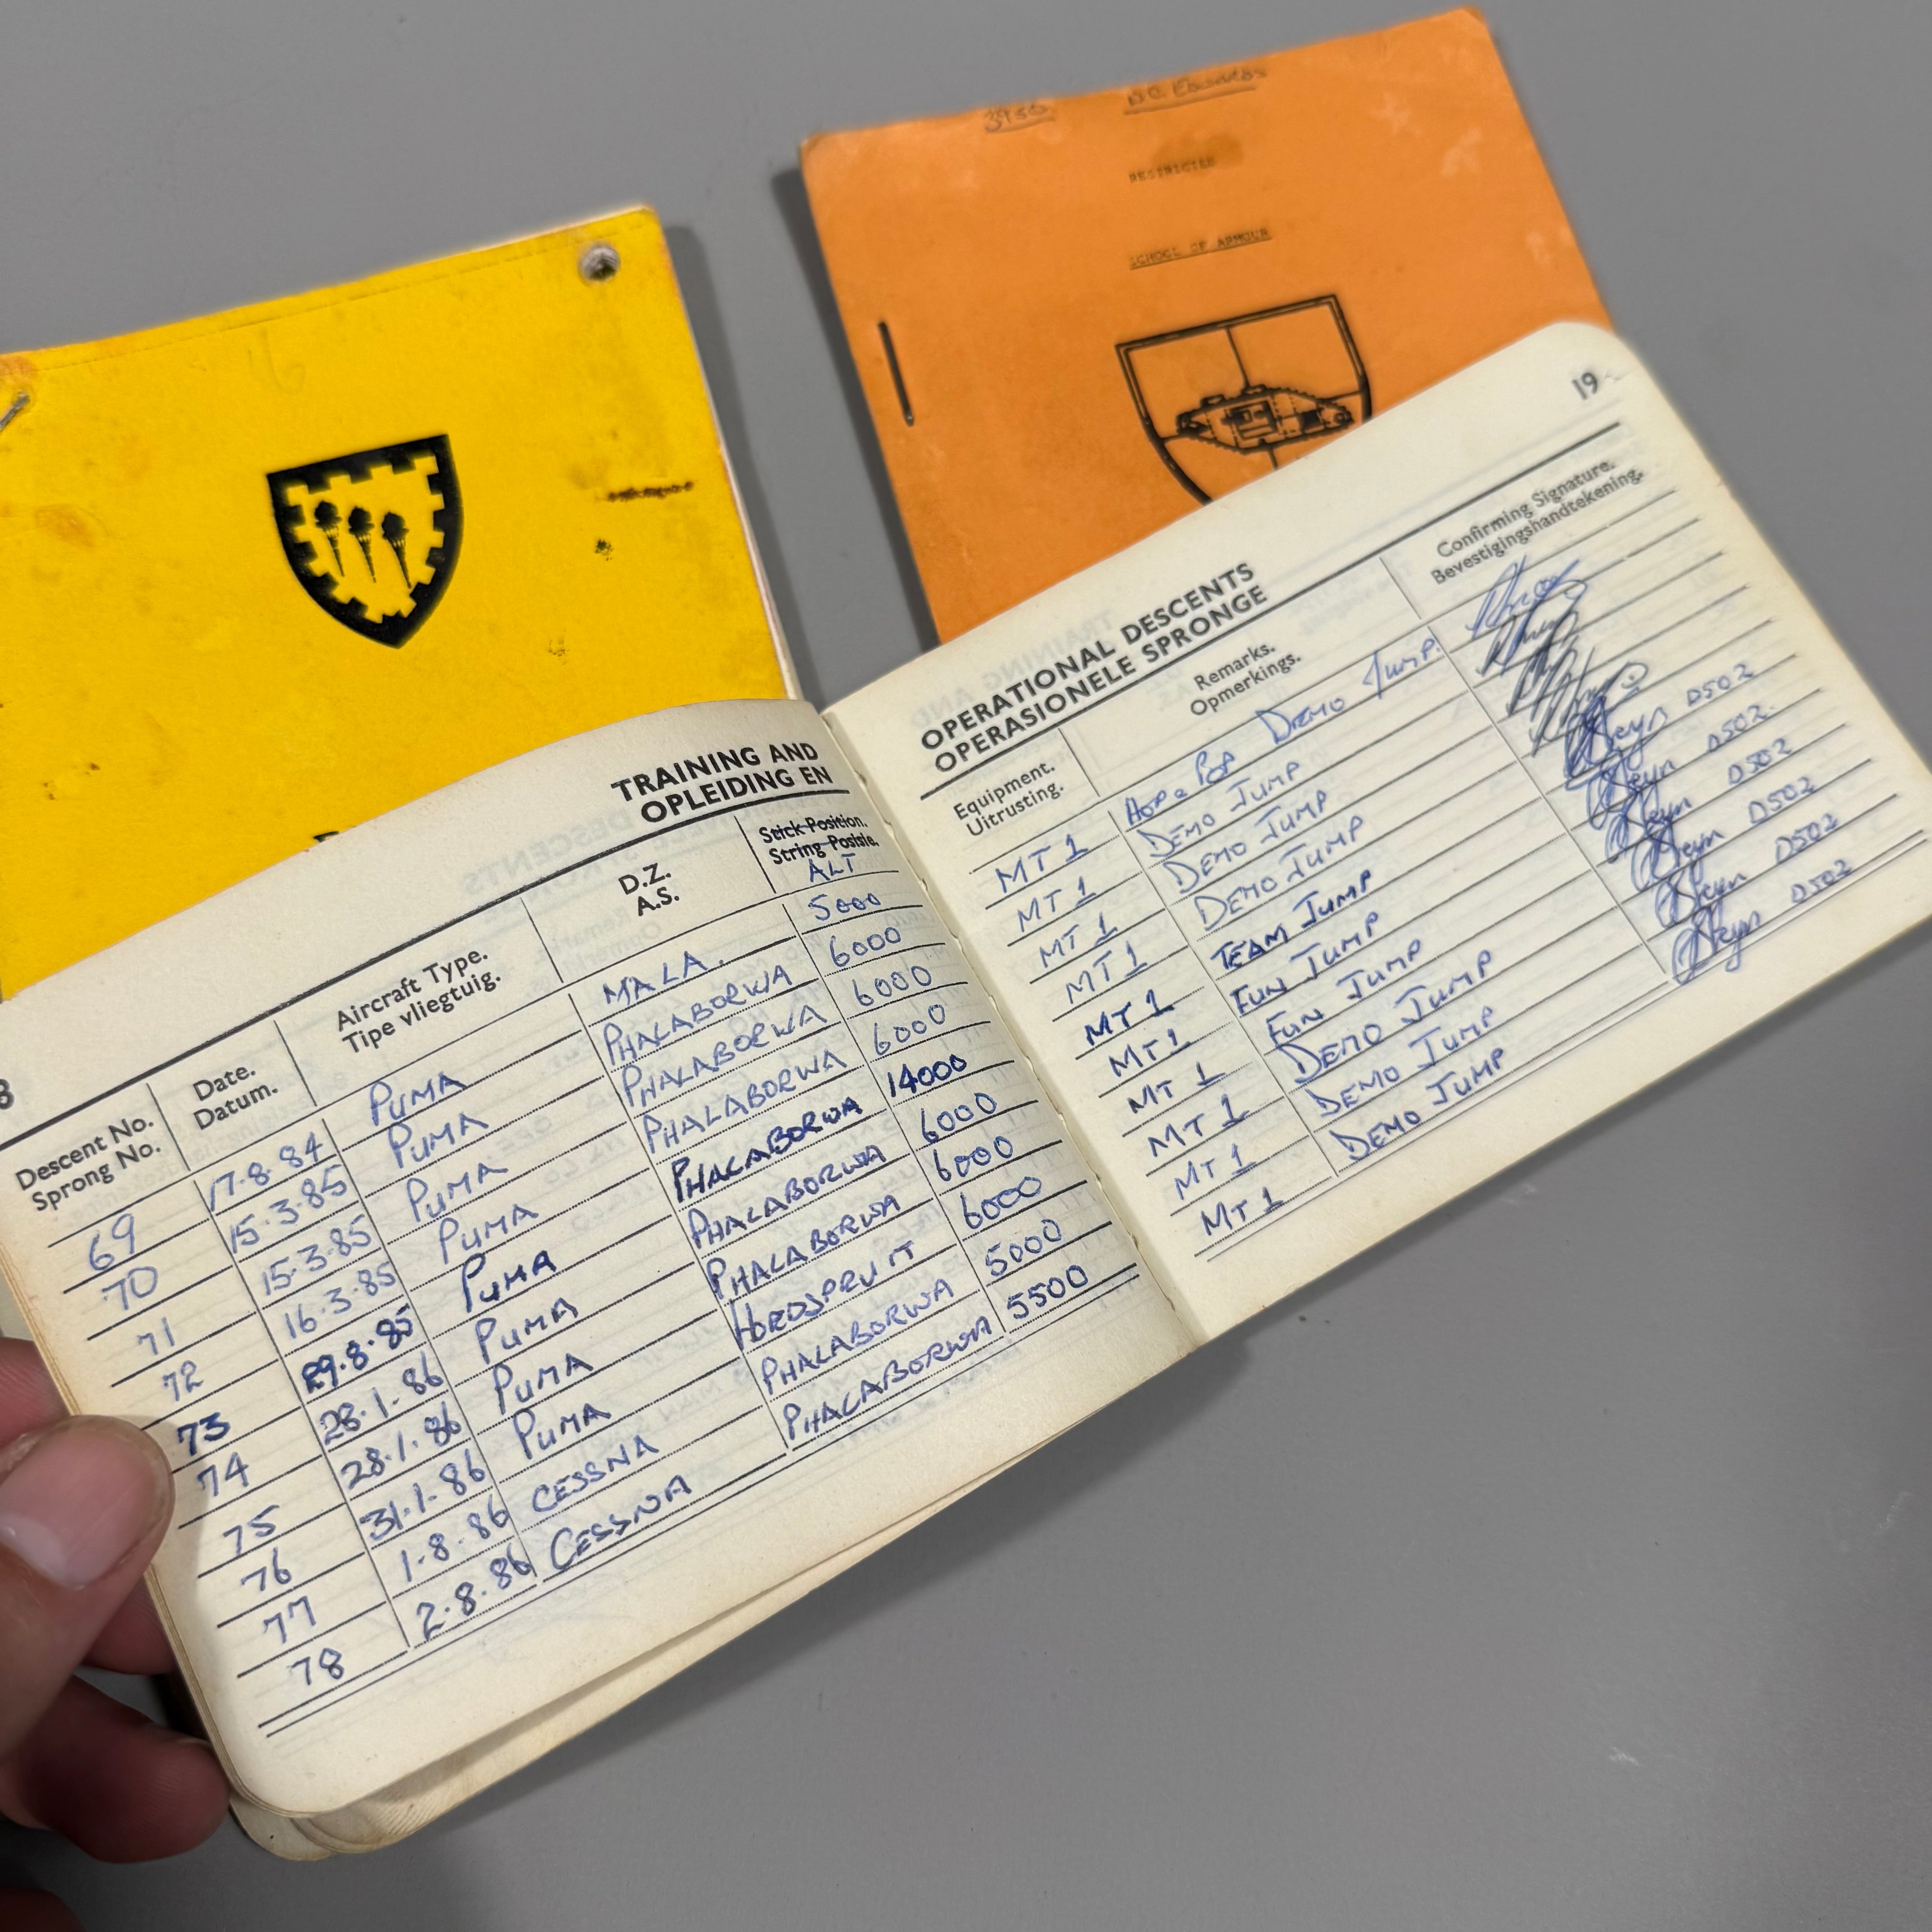 RESTRICTED
SCHOOL OF ARMOUR
TRAINING AND
OPLEIDING EN
Descent No. Date. Aircraft Type. D.Z. Stick Position.
Sprong No. Datum. Tipe vliegtuig. A.S. String Posisie.
ALT
69 17.8.84 PUMA MALA. 5000
70 15.3.85 PUMA PHALABORWA 6000
71 15.3.85 PUMA PHALABORWA 6000
72 16.3.85 PUMA PHALABORWA 6000
73 29.8.85 PUMA PHALABORWA 14000
74 28.1.86 PUMA PHALABORWA 6000
75 28.1.86 PUMA PHALABORWA 6000
76 31.1.86 PUMA HOEDSPRUIT 6000
77 1.8.86 CESSNA PHALABORWA 5000
78 2.8.86 CESSNA PHALABORWA 5500
19
OPERATIONAL DESCENTS
OPERASIONELE SPRONGE
Equipment. Remarks. Confirming Signature.
Uitrusting. Opmerkings. Bevestigingshandtekening.
MT 1 HOP & POP DEMO JUMP.
MT 1 DEMO JUMP
MT 1 DEMO JUMP
MT 1 DEMO JUMP
MT 1 TEAM JUMP Steyn D502
MT 1 FUN JUMP Steyn D502.
MT 1 FUN JUMP Steyn D502
MT 1 DEMO JUMP Steyn D502
MT 1 DEMO JUMP Steyn D502
MT 1 DEMO JUMP Steyn D502